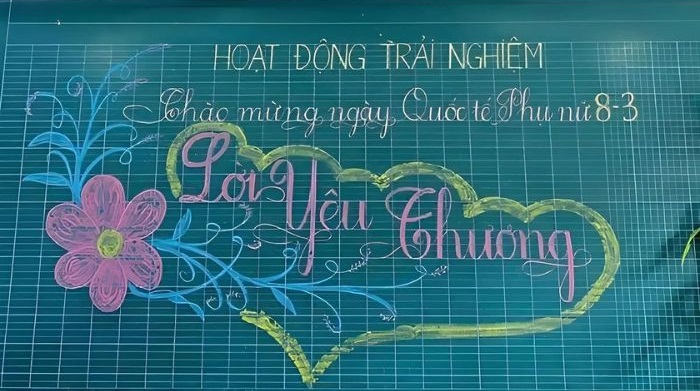 HOẠT ĐỘNG TRẢI NGHIỆM
Chào mừng ngày Quốc tế Phụ nữ 8-3
Lời Yêu Thương